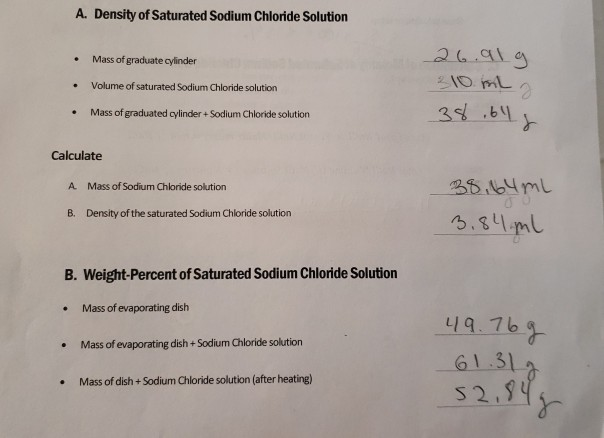 A. Density of Saturated Sodium Chloride Solution
• Mass of graduate cylinder 26.91 g
• Volume of saturated Sodium Chloride solution 10 mL
• Mass of graduated cylinder + Sodium Chloride solution 38.64 g
Calculate
A. Mass of Sodium Chloride solution 38.64 mL
B. Density of the saturated Sodium Chloride solution 3.84 mL
B. Weight-Percent of Saturated Sodium Chloride Solution
• Mass of evaporating dish 49.76 g
• Mass of evaporating dish + Sodium Chloride solution 61.31 g
• Mass of dish + Sodium Chloride solution (after heating) 52.84 g